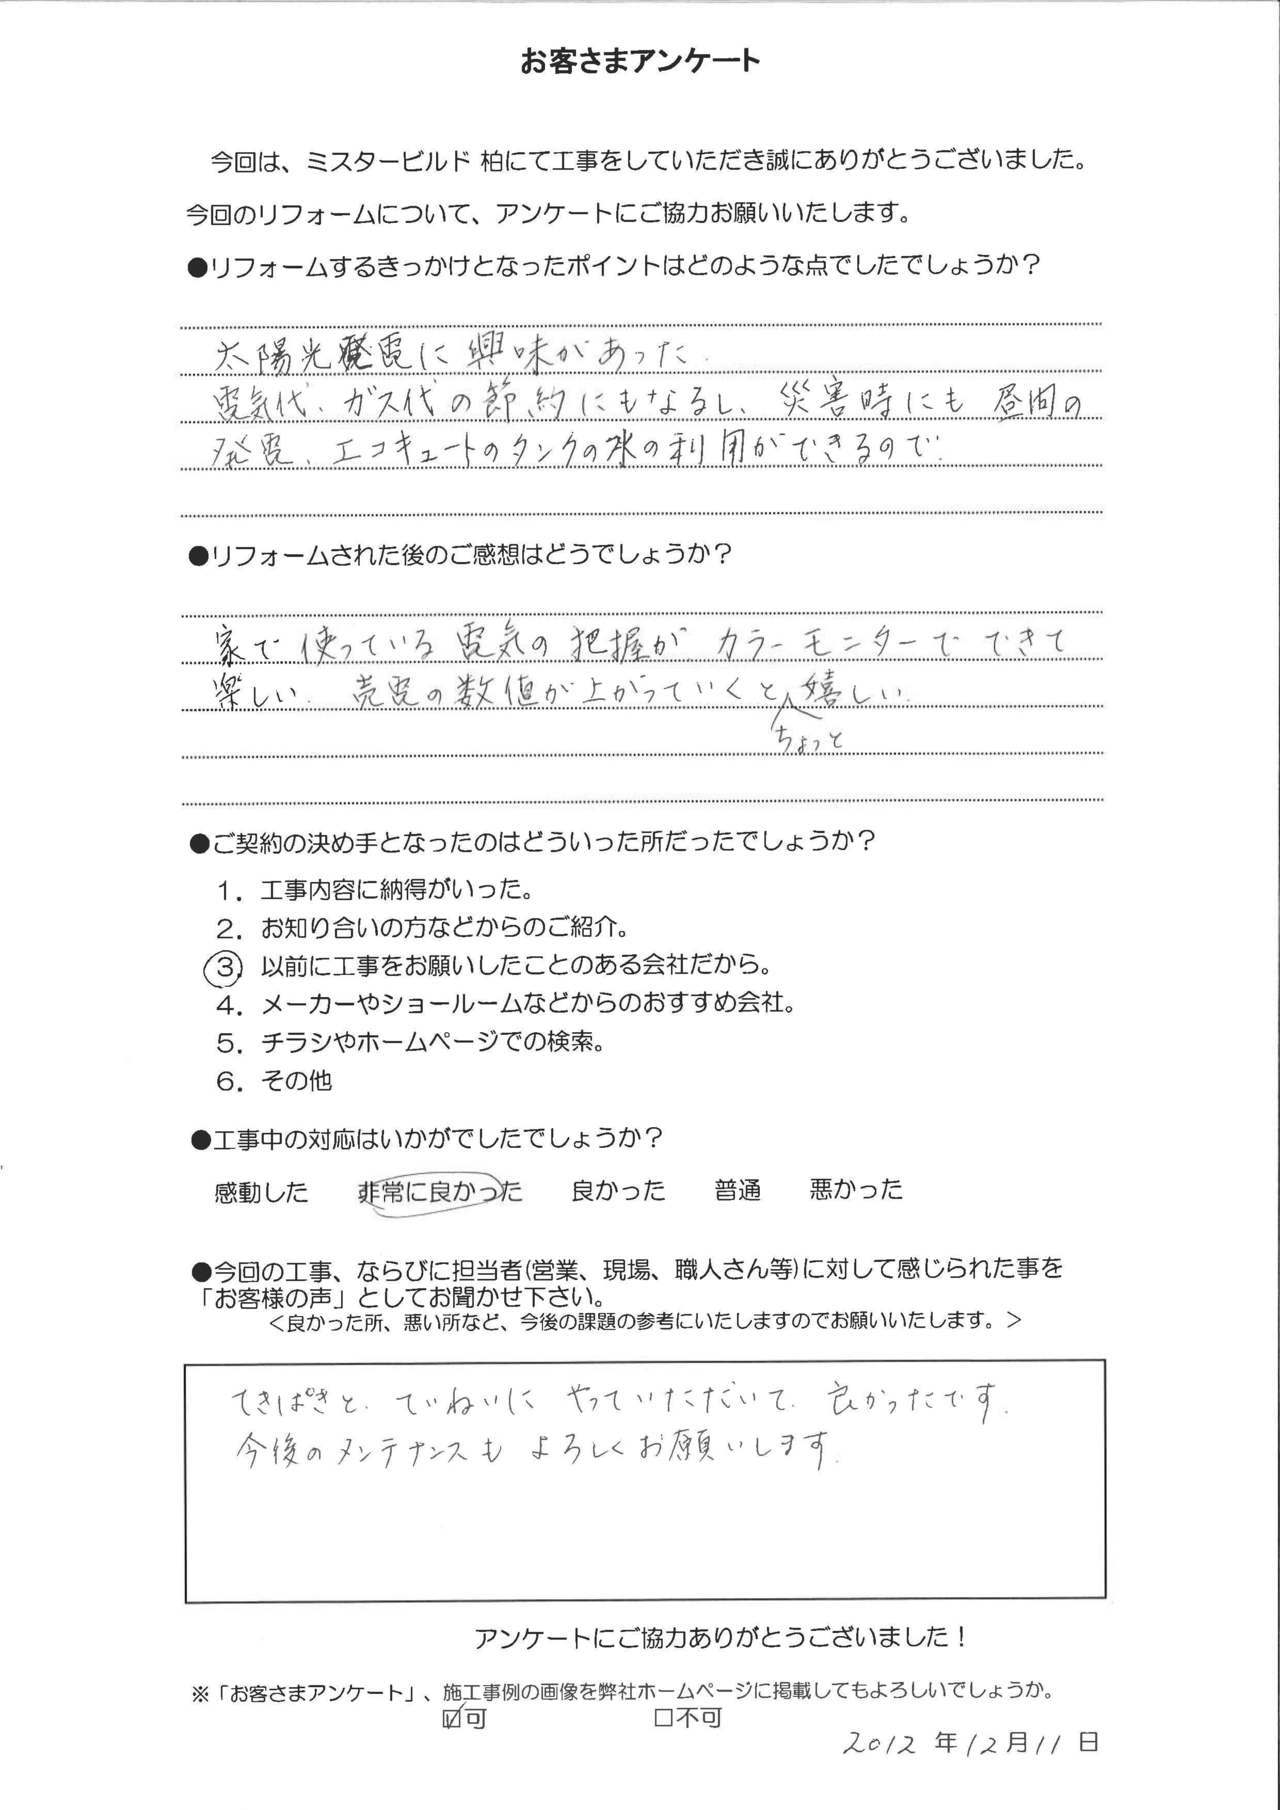 お客さまアンケート
今回は、ミスタービルド 柏にて工事をしていただき誠にありがとうございました。
今回のリフォームについて、アンケートにご協力お願いいたします。
●リフォームするきっかけとなったポイントはどのような点でしたでしょうか？
太陽光発電に興味があった.
電気代、ガス代の節約にもなるし、災害時にも昼間の
発電、エコキュートのタンクの水の利用ができるので.
●リフォームされた後のご感想はどうでしょうか？
家で使っている電気の把握が カラーモニターで できて
楽しい. 売電の数値が上がっていくと嬉しい.
ちょっと
●ご契約の決め手となったのはどういった所だったでしょうか？
１．工事内容に納得がいった。
２．お知り合いの方などからのご紹介。
３．以前に工事をお願いしたことのある会社だから。
４．メーカーやショールームなどからのおすすめ会社。
５．チラシやホームページでの検索。
６．その他
●工事中の対応はいかがでしたでしょうか？
感動した 非常に良かった 良かった 普通 悪かった
●今回の工事、ならびに担当者(営業、現場、職人さん等)に対して感じられた事を
「お客様の声」としてお聞かせ下さい。
＜良かった所、悪い所など、今後の課題の参考にいたしますのでお願いいたします。＞
てきぱきと、ていねいに やっていただいて、良かったです.
今後のメンテナンスも よろしくお願いします.
アンケートにご協力ありがとうございました！
※「お客さまアンケート」、施工事例の画像を弊社ホームページに掲載してもよろしいでしょうか。
☑可 □不可
2012 年 12 月 11 日